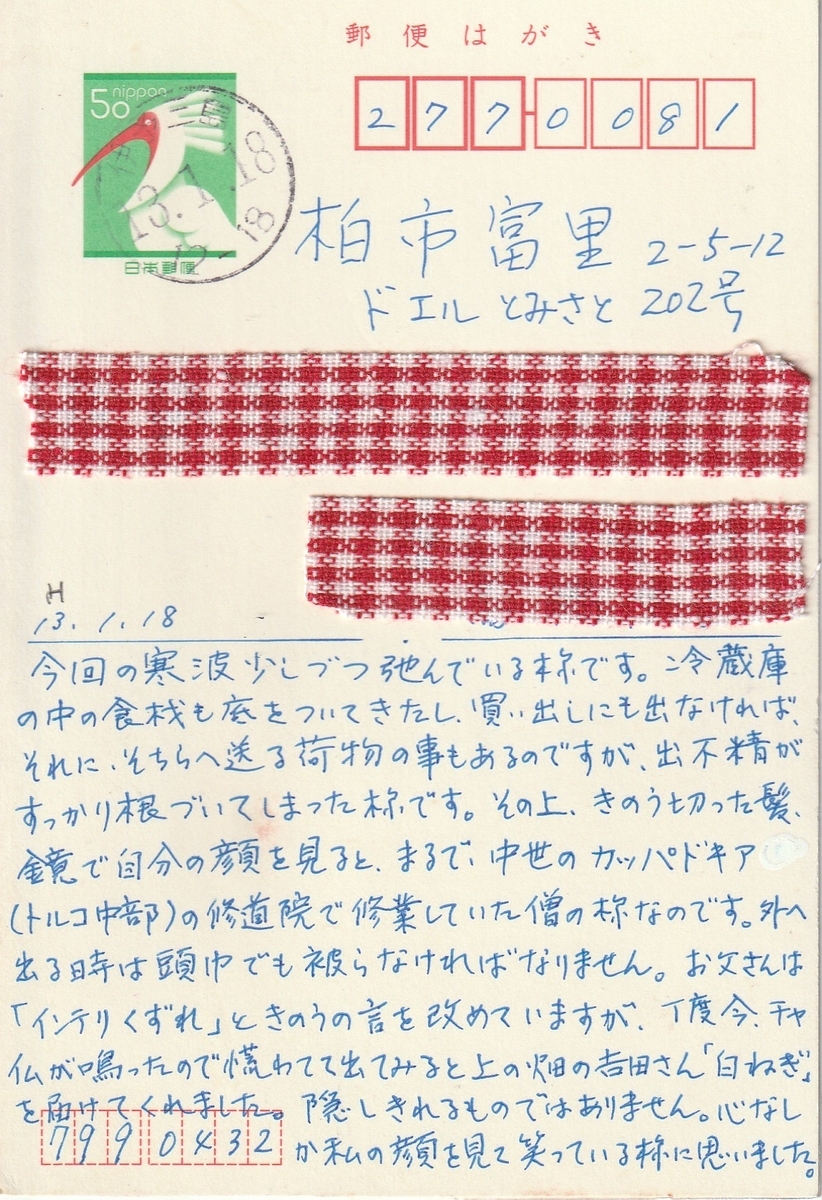 郵便はがき
50 nippon
日本郵便
三島
13.1.18
12-18
277-0081
柏市富里 2-5-12
ドエルとみさと 202号
H
13.1.18
今回の寒波少しづつ弛んでいる様です。冷蔵庫
の中の食材も底をついてきたし、買い出しにも出なければ、
それに、そちらへ送る荷物の事もあるのですが、出不精が
すっかり根づいてしまった様です。その上、きのう切った髪、
鏡で自分の顔を見ると、まるで、中世のカッパドキア
(トルコ中部)の修道院で修業していた僧の様なのです。外へ
出る時は頭巾でも被らなければなりません。お父さんは
「インテリくずれ」ときのうの言を改めていますが、丁度今、チャ
仏が鳴ったので慌わてて出てみると上の畑の吉田さん「白ねぎ」
を届けてくれました。隠しきれるものではありません。心なし
か私の顔を見て笑っている様に思いました。
7990432